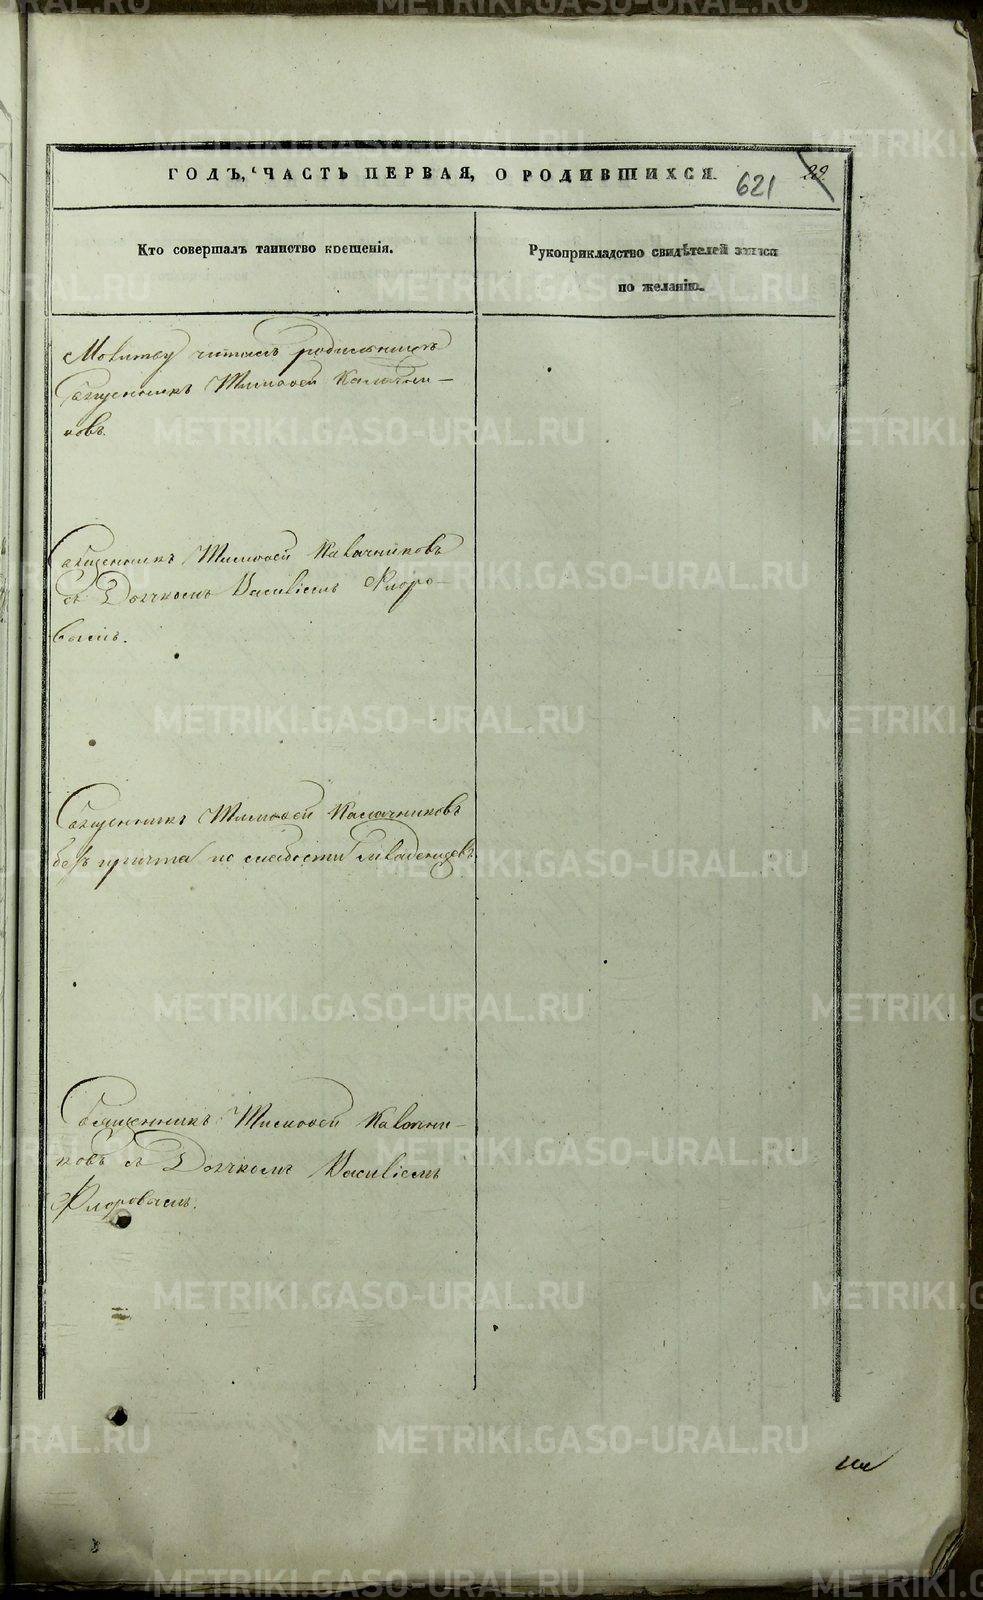 ГОДЪ, ЧАСТЬ ПЕРВАЯ, О РОДИВШИХСЯ.
621
22.
Кто совершалъ таинство крещенія.
Рукоприкладство свидѣтелей записи
по желанію.
Молитву читалъ родильницѣ
Священникъ Тимоѳей Калачни-
ковъ.
Священникъ Тимоѳей Калачниковъ
съ Дьячкомъ Василіемъ Флоро-
вымъ.
Священникъ Тимоѳей Калачниковъ
безъ причта по слабости младенцевъ.
Священникъ Тимоѳей Калачни-
ковъ съ Дьячкомъ Василіемъ
Флоровымъ.
METRIKI.GASO-URAL.RU